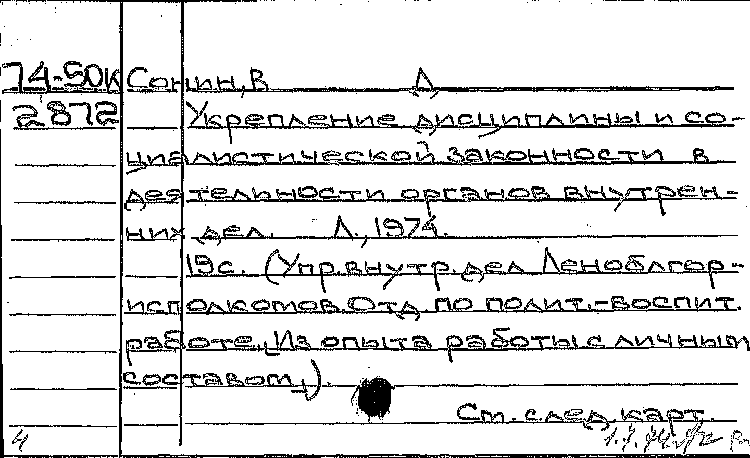 74-50к Сонин, В Д
2872 Укрепление дисциплины и со-
циалистической законности в
деятельности органов внутрен-
них дел. Л., 1974.
19с. (Упр. внутр. дел Леноблгор-
исполкомов. Отд. по полит.-воспит.
работе. „Из опыта работы с личным
составом„).
Ст. след. карт.
4